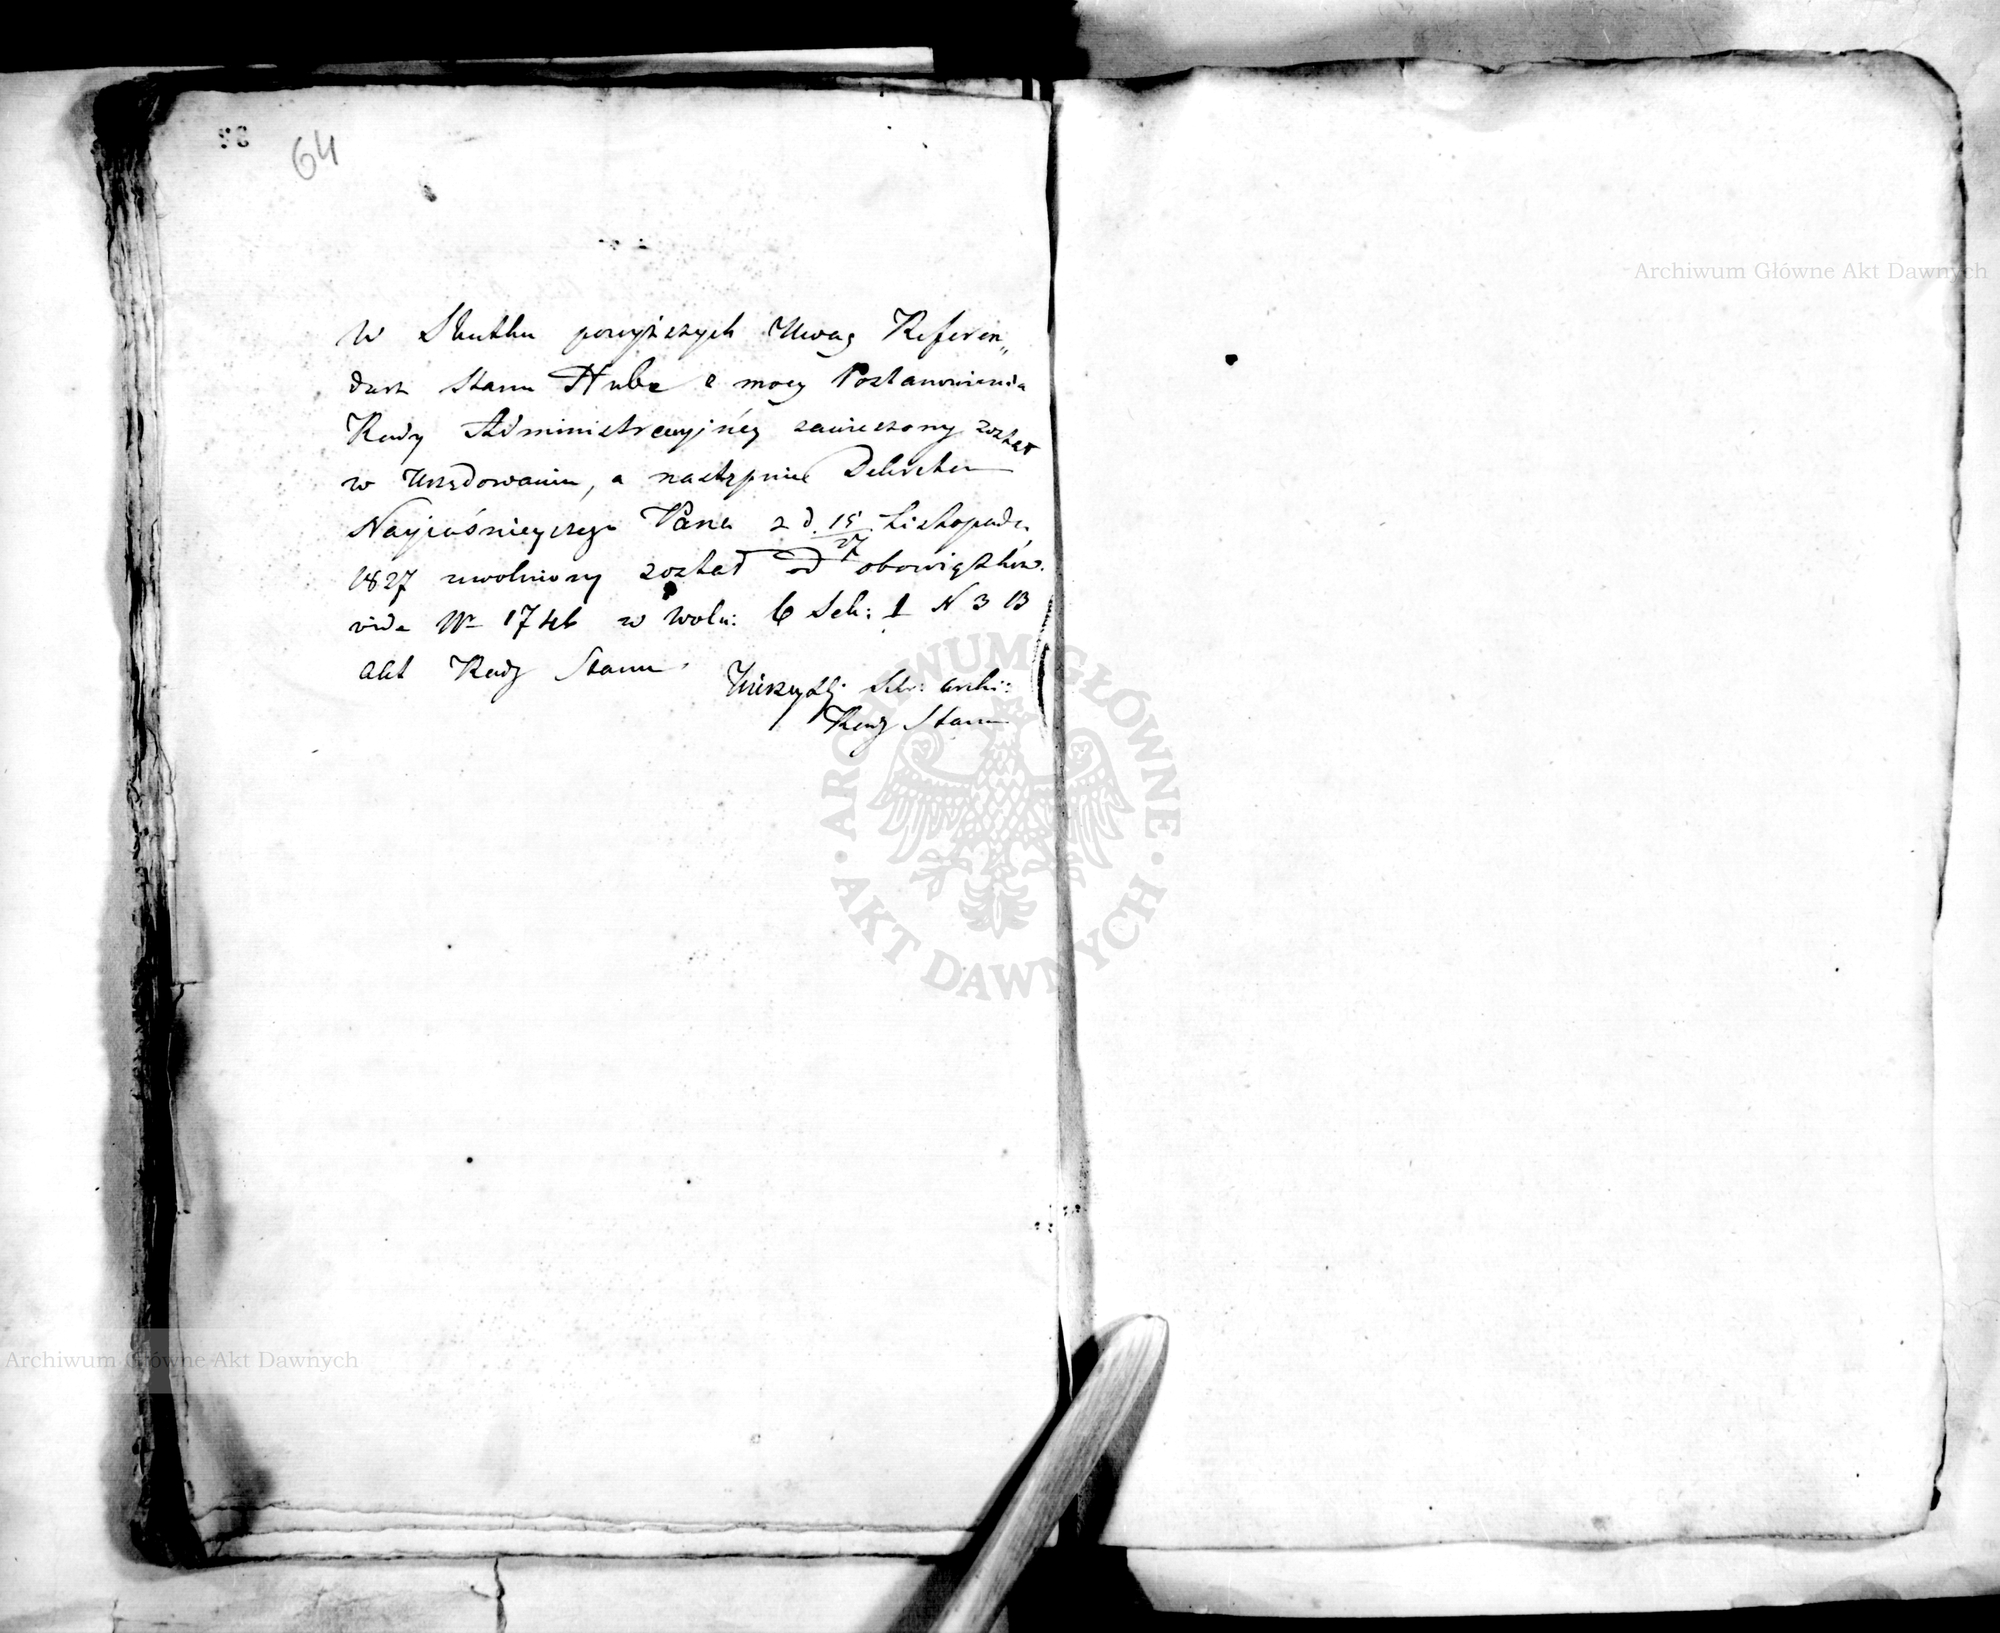 64
W Skutku powyższych Uwag Referen„
darz Stanu Hube z mocy Postanowienia
Rady Administracyjney zawieszony został
w Urzędowaniu, a następnie Dekretem
Nayjaśnieyszego Pana z d. 15/27 Listopada
1827 uwolniony został od obowiązków.
vide Nr 1746 w wolu: 6 Sek: 1 N 3 B
akt Rady Stanu
Sekr: Archi:
Rady Stanu
Archiwum Główne Akt Dawnych
ARCHIWUM GŁÓWNE AKT DAWNYCH
Archiwum Główne Akt Dawnych